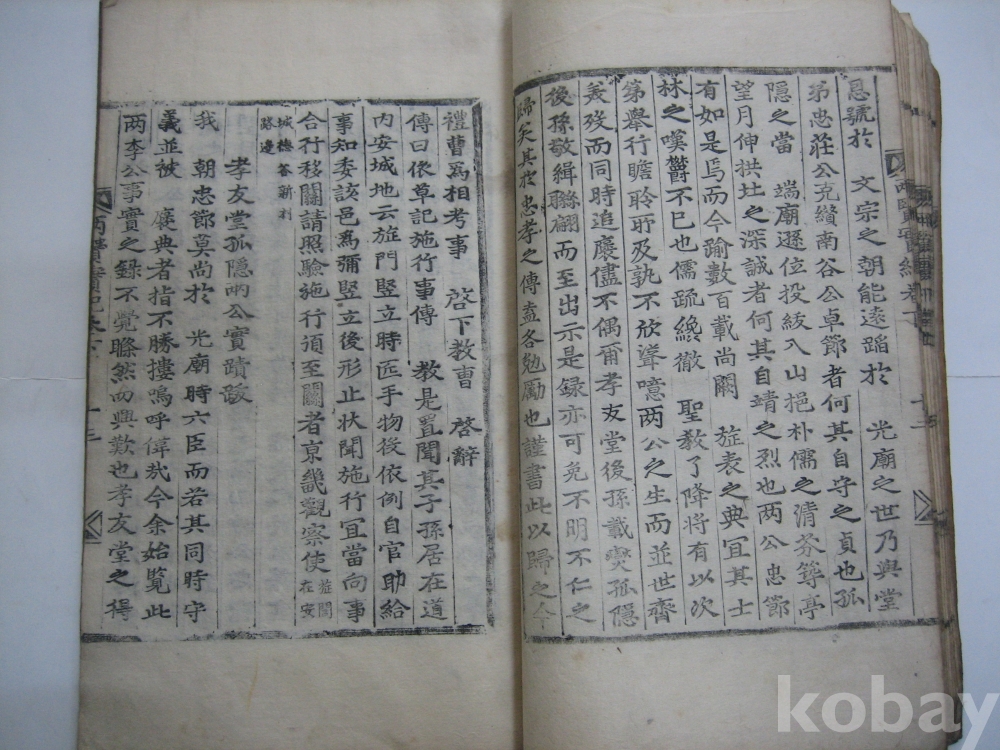 恩號於 文宗之朝能遠蹈於 光廟之世乃與堂
弟忠莊公克纘南谷公卓節者何其自守之貞也孤
隱之當 端廟遜位投紱入山挹朴儒之清芬築亭
望月伸拱北之深誠者何其自靖之烈也两公忠節
有如是焉而今踰數百載尚闕 㫌表之典冝其士
林之嘆欝不已也儒䟽纔徹 聖教了降将有以次
第舉行瞻聆所及孰不欣聳噫两公之生而並世齊
美殁而同時追褒儘不偶爾孝友堂後孫載爕孤隱
後孫敬緝聮翩而至出示是録亦可免不明不仁之
歸矣其於忠孝之傳盍各勉勵也謹書此以歸之今
禮曹爲相考事 啓下教曹 啓辭
傳曰依草記施行事傳 教是置聞其子孫居在道
内安城地云㫌門竪立時匠手物役依例自官助給
事知委該邑爲彌竪立後形止状聞施行冝當向事
合行移關請照驗施行湏至關者京畿觀察使㫌閭在安
城
路邊
孝友堂孤隱两公實蹟跋
我 朝忠節莫尚於 光廟時六臣而若其同時守
義並被 㢘典者指不勝摟嗚呼偉㢤今余始覧此
两李公事實之録不覺㬢然而興歎也孝友堂之得